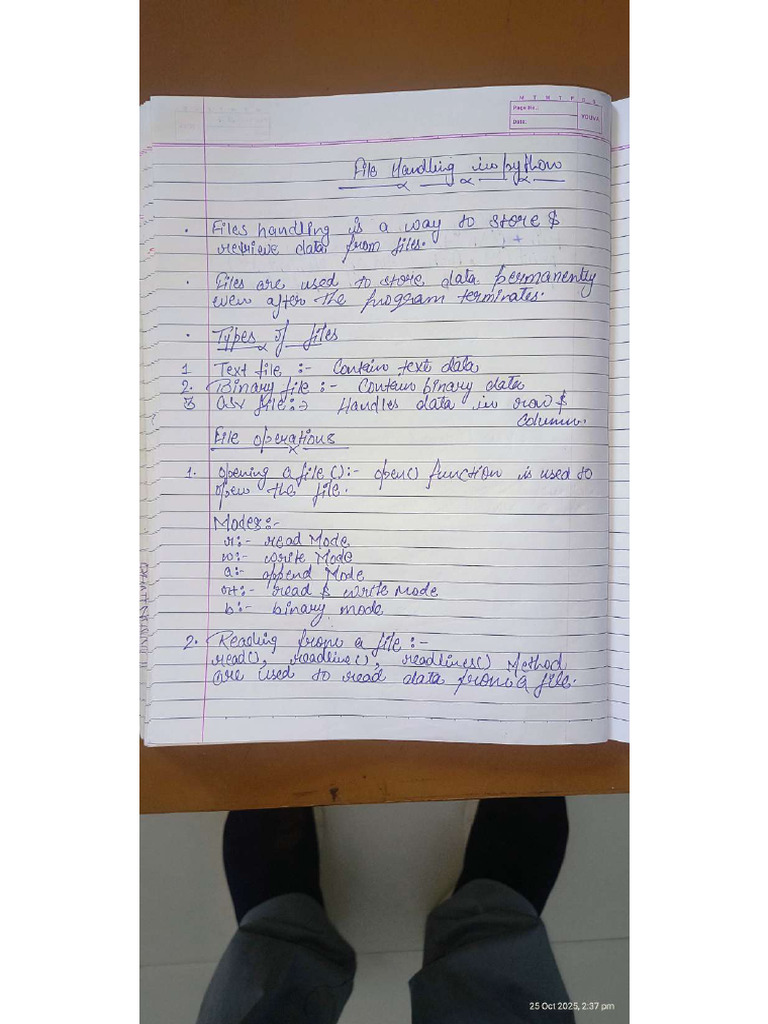 M T W T F S S
Page No.:
Date:
YOUVA
File Handling in python
• Files handling is a way to store &
retrieve data from files.
• Files are used to store data permanently
even after the program terminates.
• Types of files
1 Text file :- Contain text data
2. Binary file :- Contain binary data
3 CSV file :→ Handles data in row &
Column.
File operations
1. Opening a file():- open() function is used to
open the file.
Modes:-
r:- read Mode
w:- write Mode
a:- append Mode
r+:- read & write Mode
b:- binary mode
2. Reading from a file :-
read(), readline(), readlines() Method
are used to read data from a file.
25 Oct 2025, 2:37 pm